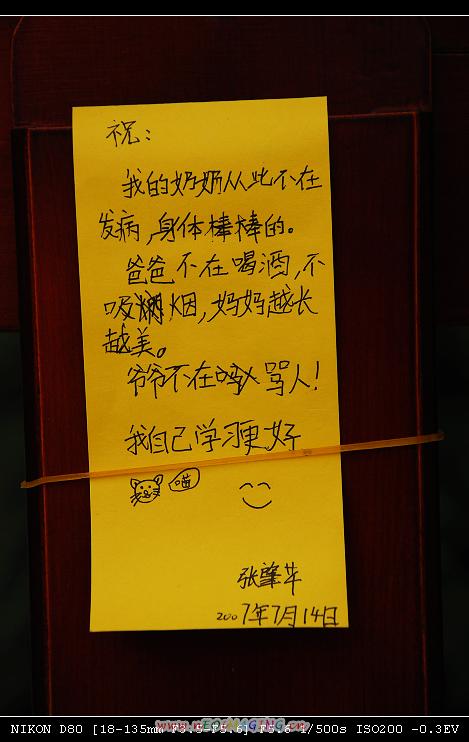 祝：
我的奶奶从此不在
发病，身体棒棒的。
爸爸不在喝酒，不
吸烟，妈妈越长
越美。
爷爷不在骂人！
我自己学习更好
喵
张肇芊
2007年7月14日
www.nEOiMAGING.cn
NIKON D80 [18-135mm F3.5-F5.6] F5.6 1/500s ISO200 -0.3EV